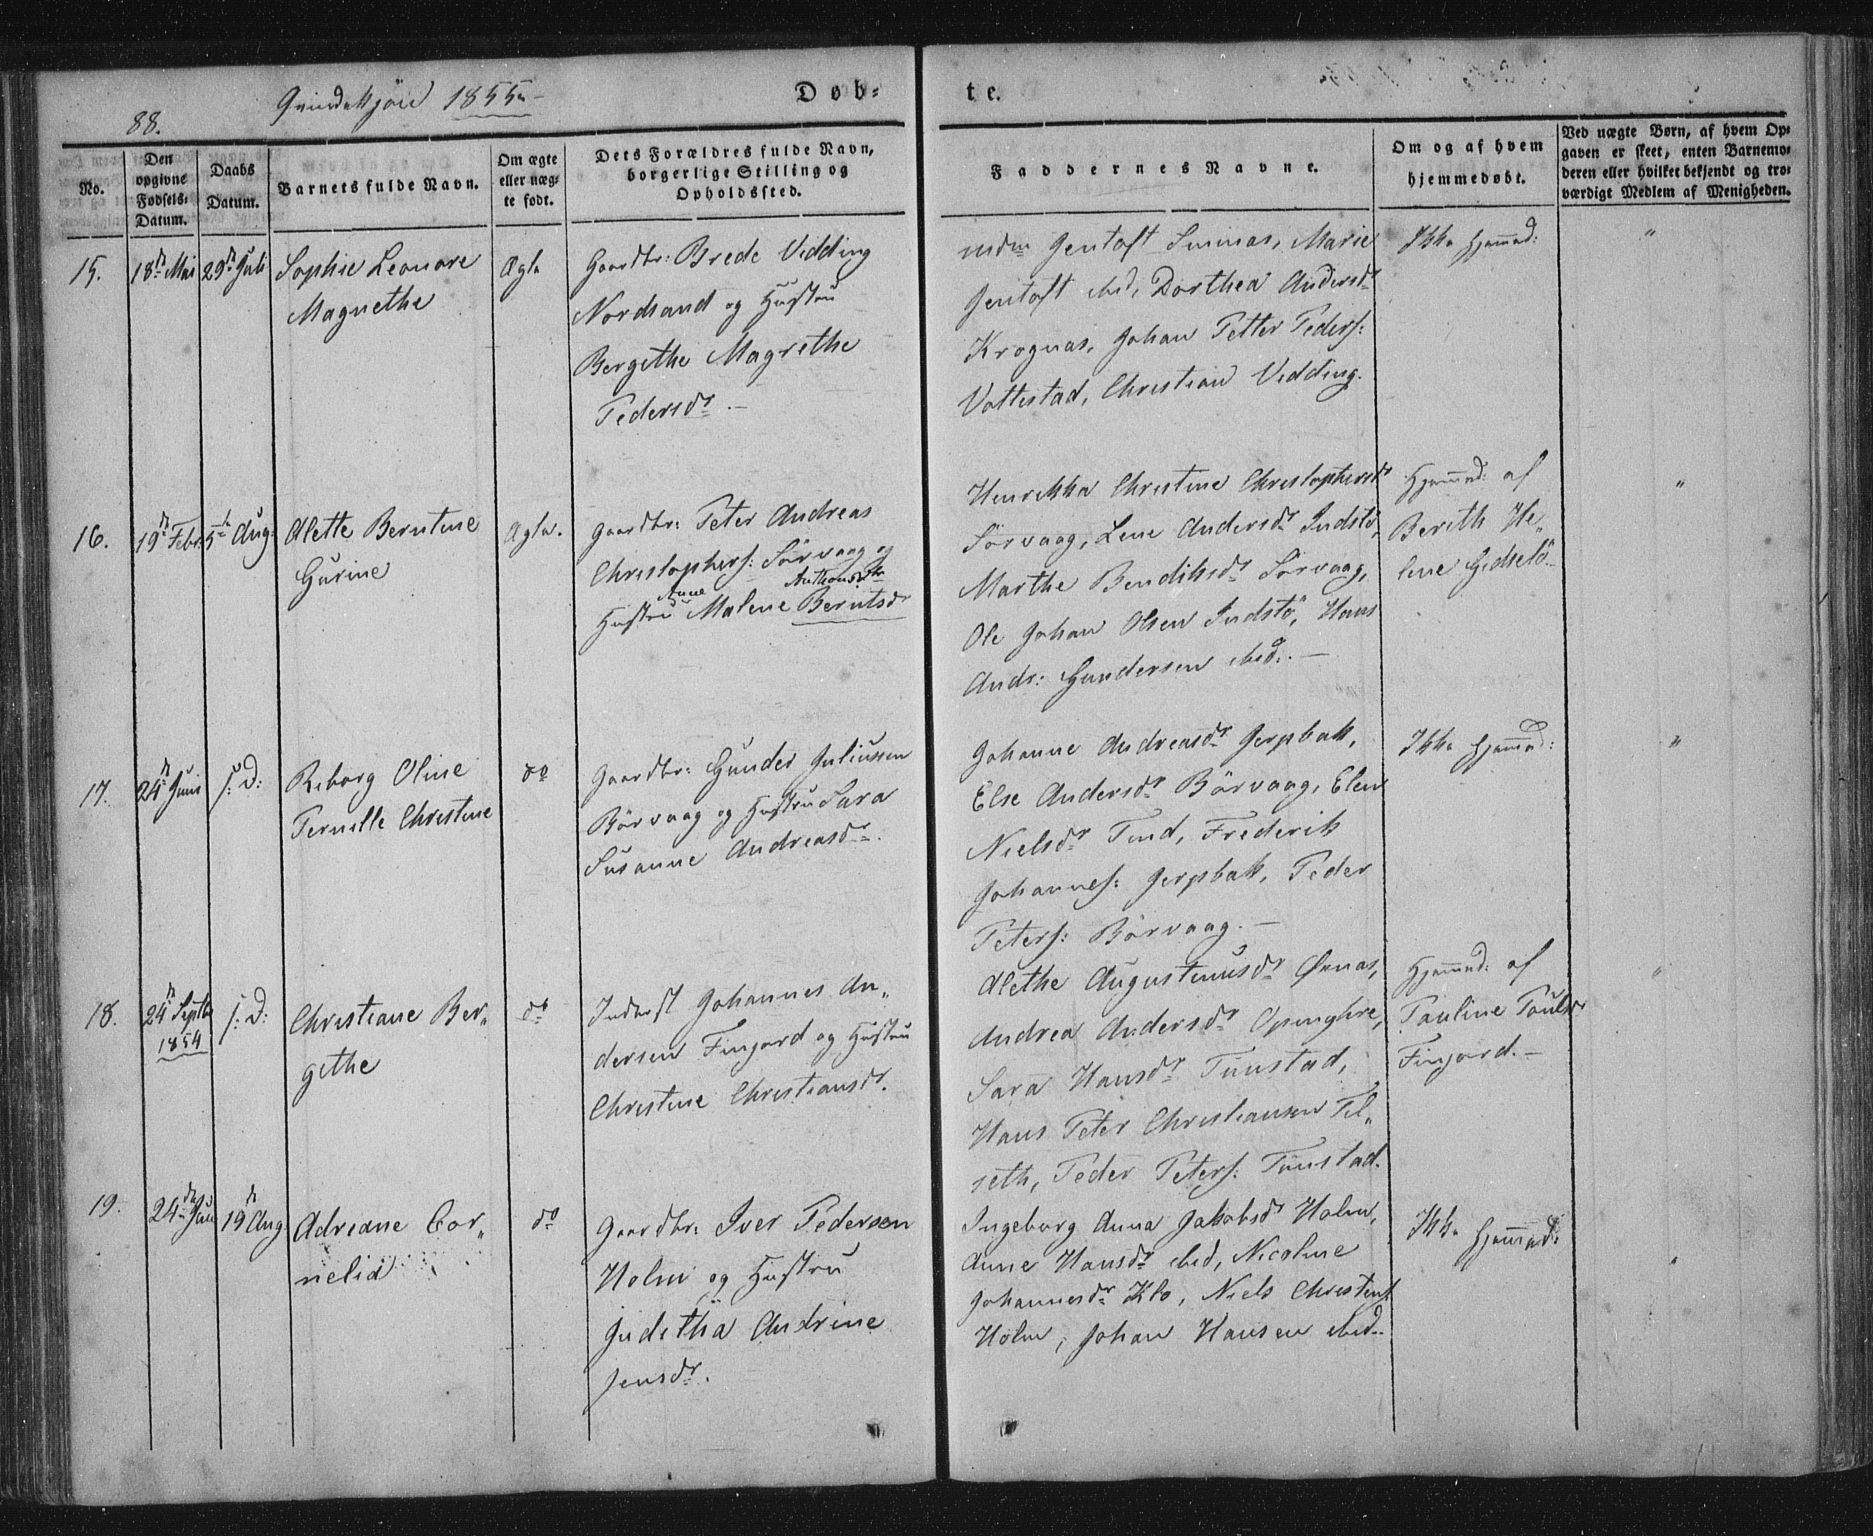 88.
Qvindekjön 1855
Døb-
te.
No.
Den opgivne Fødsels-Datum.
Daabs Datum.
Barnets fulde Navn.
Om ægte eller uæg-te født.
Dets Forældres fulde Navn, borgerlige Stilling og Opholdssted.
Faddernes Navne.
Om og af hvem hjemmedøbt.
Ved uægte Børn, af hvem Op-gaven er skeet, enten Barnemo-deren eller hvilket bekjendt og tro-værdigt Medlem af Menigheden.
15.
18de Mai
29de Juli
Sophie Leonore
Magnethe
Ægte
Gaardbr: Brede Vedding
Nordsand og Hustru
Bergithe Magrethe
Pedersdr. —
Gentoft Sminas, Marie
Gentoft ibid, Dorthea Andersdr
Krognas, Johan Petter Peders:
Vottestad, Christian Vedding.
Ikke hjemmed:
"
16.
19de Febr.
5te Aug:
Alette Berntine
Gurine
Ægte.
Gaardbr: Peter Andreas
Christophers: Sörvaag og
Anne Anthonsdtr
Hustru Malene Berntsdr
Henrikka Christine Christophersdr
Sörvaag, Lene Andersdr Indstö,
Marthe Bendiksdr Sörvaag,
Ole Johan Olsen Indstö, Hans
Andr: Gundersen ibid. —
Hjemmed: af
Berith He-
lene Gidselö
"
17.
24de Juni
s: D:
Reborg Oline
Pernille Christine
do
Gaardbr: Gunder Juliussen
Börvaag og Hustru Sara
Susanne Andreasdr.
Johanne Andreasdr Jerpbak,
Else Andersdr Börvaag, Elen
Nielsdr Tind, Frederik
Johannes: Jerpbak, Peder
Peters: Börvaag. —
Ikke hjemmed:
"
18.
24de Septbr
1854
s: D:
Christiane Ber-
githe
do
Inderst Johannes An-
dersen Finjord og Hustru
Christine Christiansdr.
Alethe Augustinusdr Ørnas,
Andrea Andersdr
Sara Hansdr Tunstad,
Hans Peter Christiansen Til-
seth, Peder Peters: Tunstad.
Hjemmed: af
Pauline Paulsdr
Finjord. —
"
19.
24de Juni
19de Aug:
Adriane Cor-
nelia
do
Gaardbr: Iver Pedersen
Holm og Hustru
Juditha Andrine
Jensdr.
Ingeborg Anna Jakobsdr Holm,
Anne Hansdr ibid, Nicoline
Johannesdr Klo, Niels Christens:
Holm, Johan Hansen ibid.
Ikke hjemmed:
"